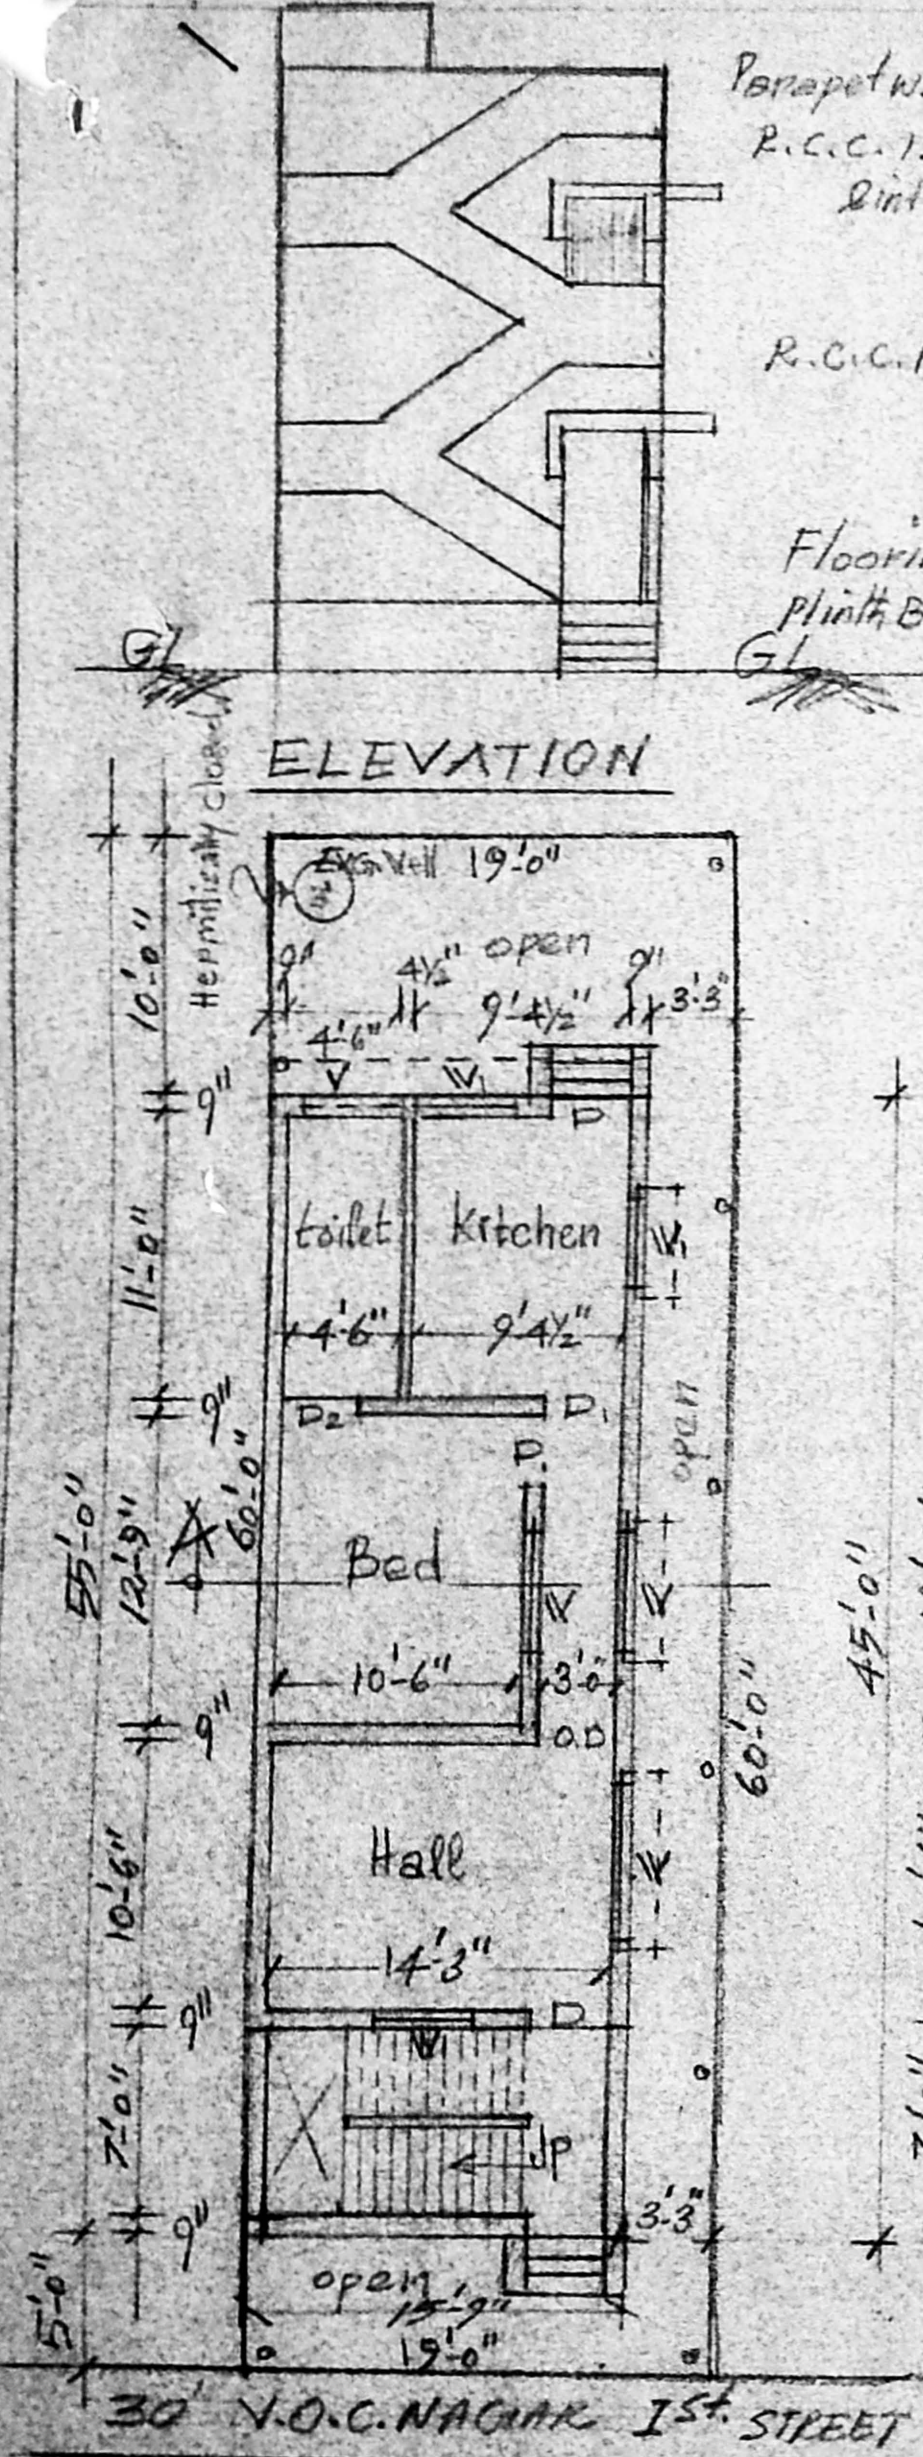 Parapet w
R.C.C.
lint
R.C.C.
Floori
Plinth B
GL
GL
ELEVATION
Hermitically closed
Exg. Well 19'-0"
open
9"
4½"
9"
4'-6"
9'-4½"
3'-3"
10'-0"
V
W1
9"
D
toilet
Kitchen
W1
11'-0"
4'-6"
9'-4½"
9"
D2
D1
open
D.
60'-0"
55'-0"
12'-9"
A
Bed
W
W
45'-0"
10'-6"
3'-0"
9"
O.D
60'-0"
10'-6"
Hall
W
14'-3"
9"
D
W
7'-0"
UP
9"
3'-3"
5'-0"
open
15'-9"
19'-0"
30' V.O.C. NAGAR Ist. STREET